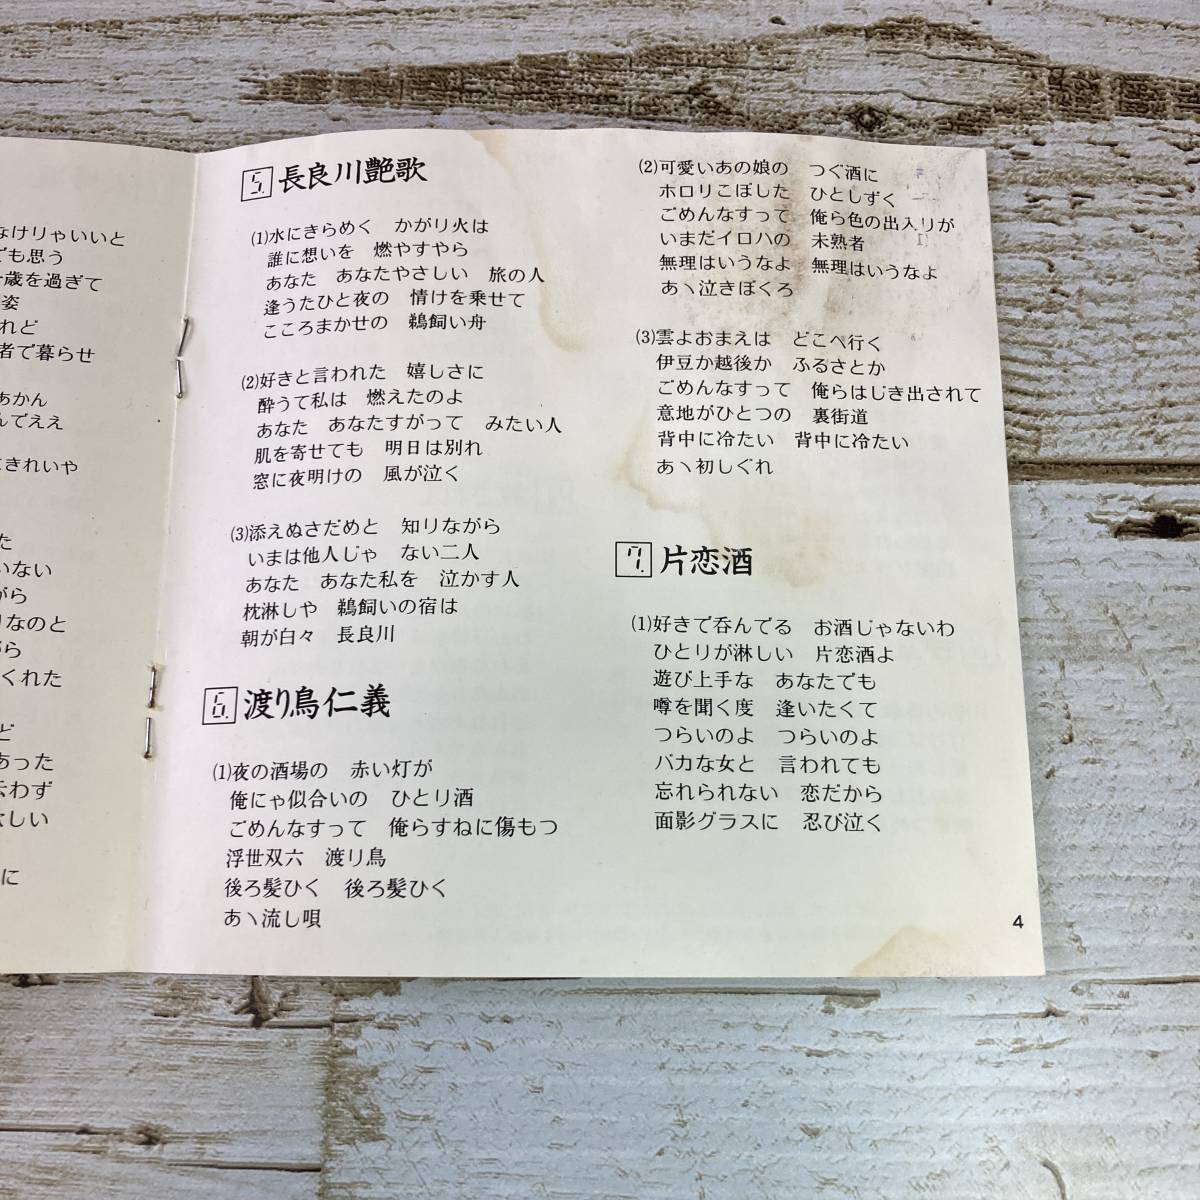 なけりゃいいと
でも思う
歳を過ぎて
姿
れど
者で暮らせ
あかん
んでええ
きれいや
た
いない
がら
なのと
がら
くれた
ど
あった
云わず
欠しい
に
5. 長良川艶歌
(1)水にきらめく　かがり火は
誰に想いを　燃やすやら
あなた　あなたやさしい　旅の人
逢うたひと夜の　情けを乗せて
こころまかせの　鵜飼い舟
(2)好きと言われた　嬉しさに
酔うて私は　燃えたのよ
あなた　あなたすがって　みたい人
肌を寄せても　明日は別れ
窓に夜明けの　風が泣く
(3)添えぬさだめと　知りながら
いまは他人じゃ　ない二人
あなた　あなた私を　泣かす人
枕淋しや　鵜飼いの宿は
朝が白々　長良川
6. 渡り鳥仁義
(1)夜の酒場の　赤い灯が
俺にゃ似合いの　ひとり酒
ごめんなすって　俺らすねに傷もつ
浮世双六　渡り鳥
後ろ髪ひく　後ろ髪ひく
あヽ流し唄
(2)可愛いあの娘の　つぐ酒に
ホロリこぼした　ひとしずく
ごめんなすって　俺ら色の出入りが
いまだイロハの　未熟者
無理はいうなよ　無理はいうなよ
あヽ泣きぼくろ
(3)雲よおまえは　どこへ行く
伊豆か越後か　ふるさとか
ごめんなすって　俺らはじき出されて
意地がひとつの　裏街道
背中に冷たい　背中に冷たい
あヽ初しぐれ
7. 片恋酒
(1)好きで呑んでる　お酒じゃないわ
ひとりが淋しい　片恋酒よ
遊び上手な　あなたでも
噂を聞く度　逢いたくて
つらいのよ　つらいのよ
バカな女と　言われても
忘れられない　恋だから
面影グラスに　忍び泣く
4